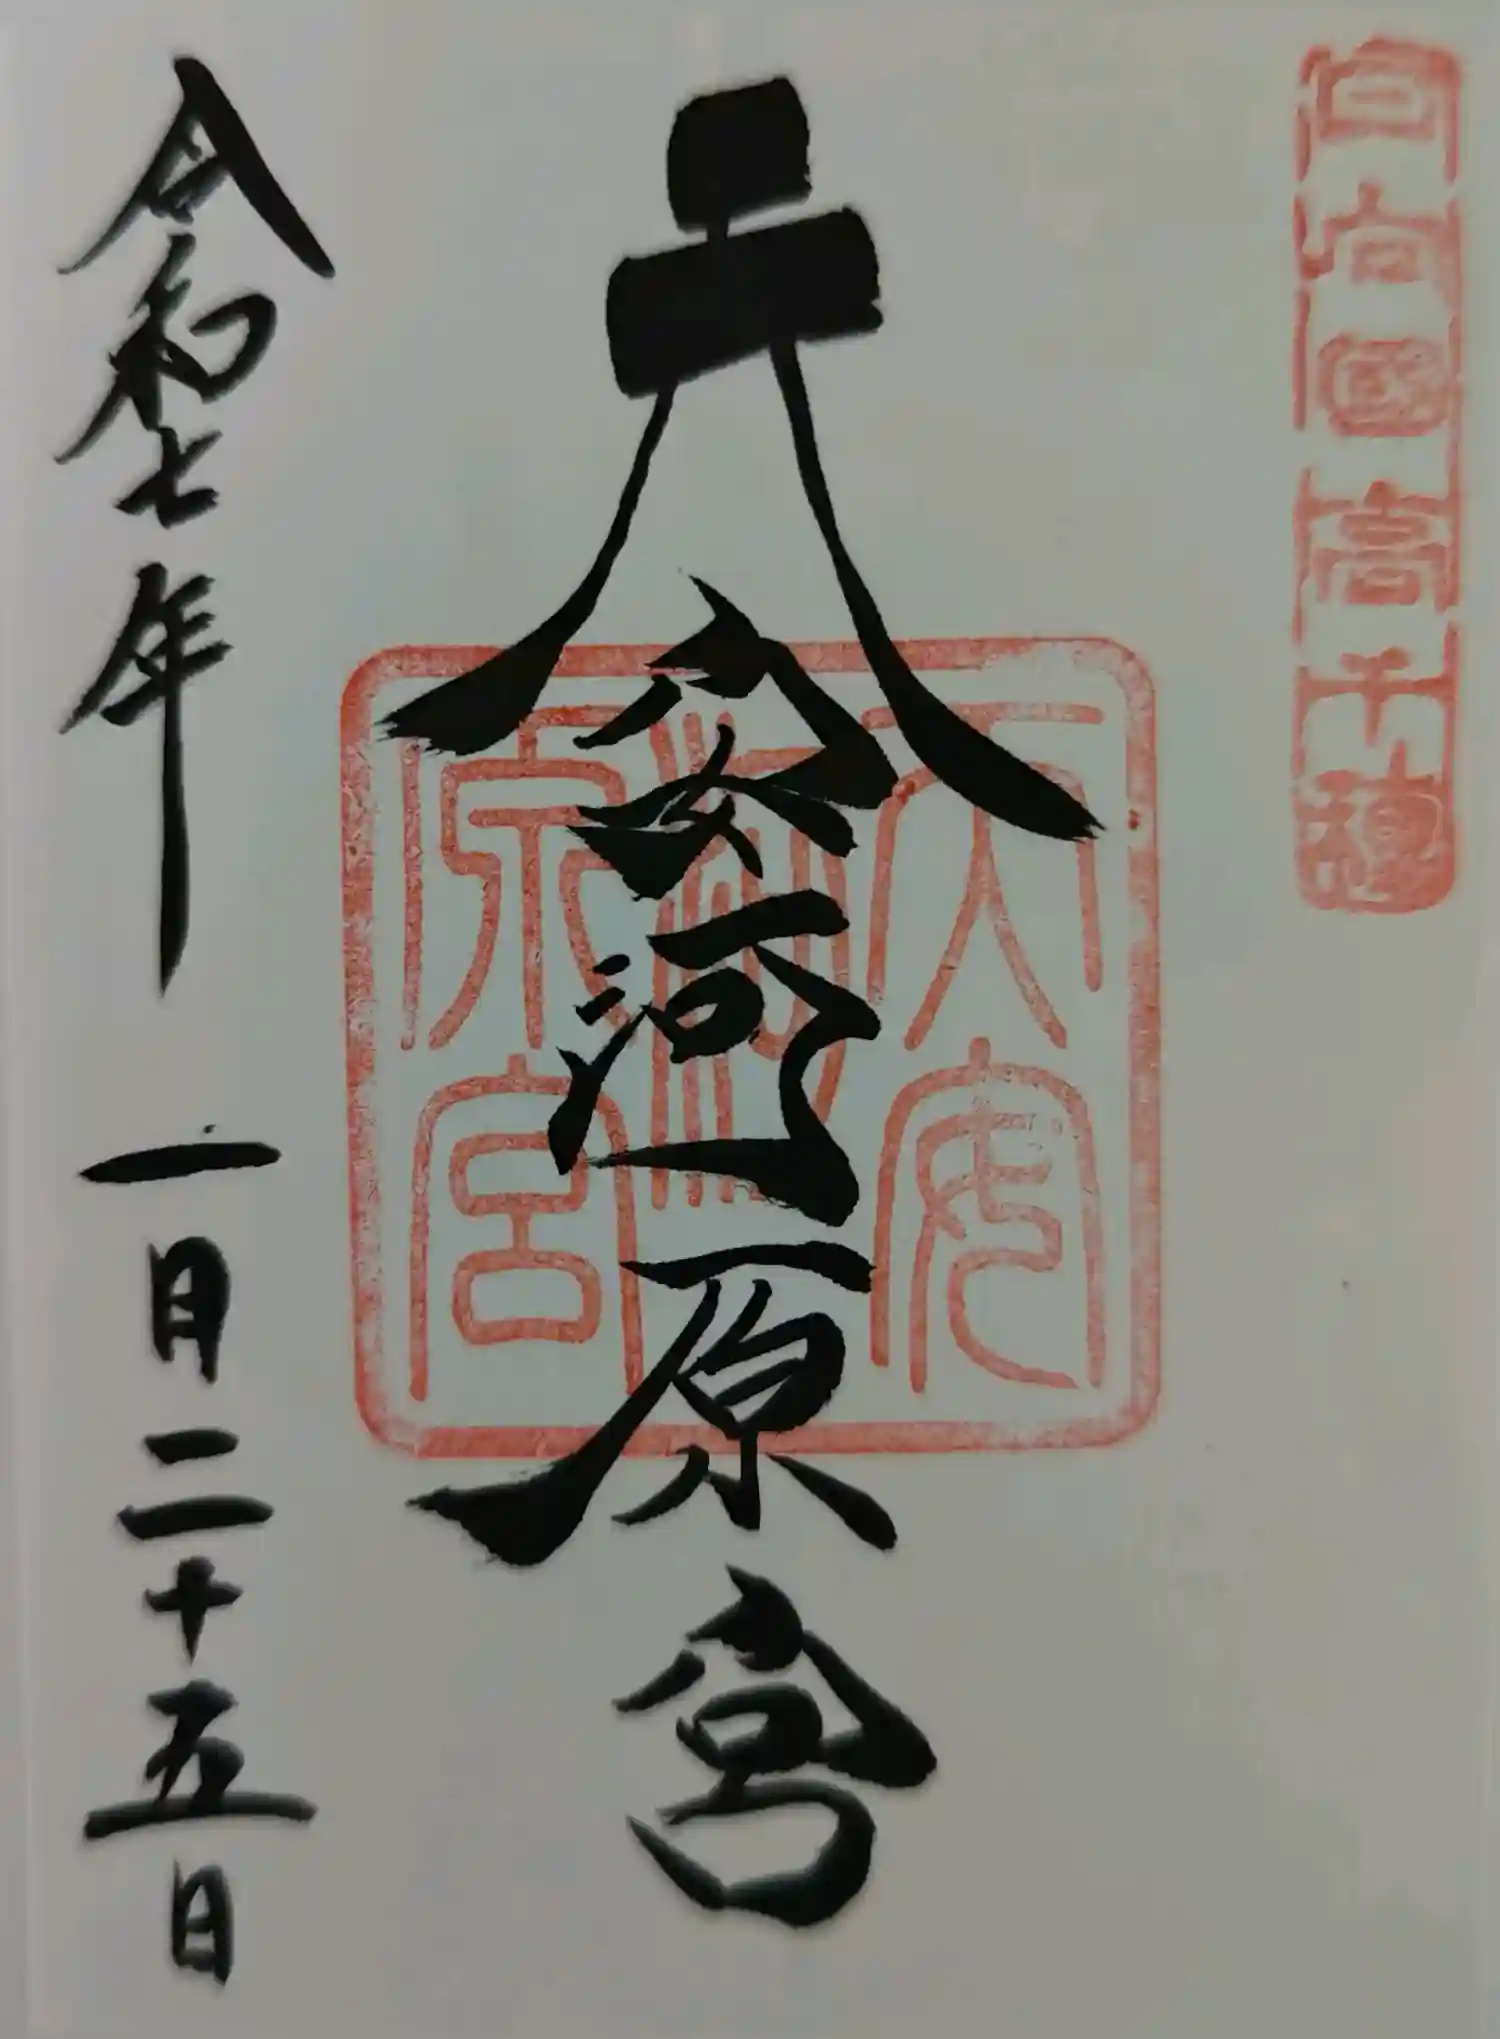 日向國高千穂
天安河原宮
天安
河
原宮
令和七年 一月二十五日